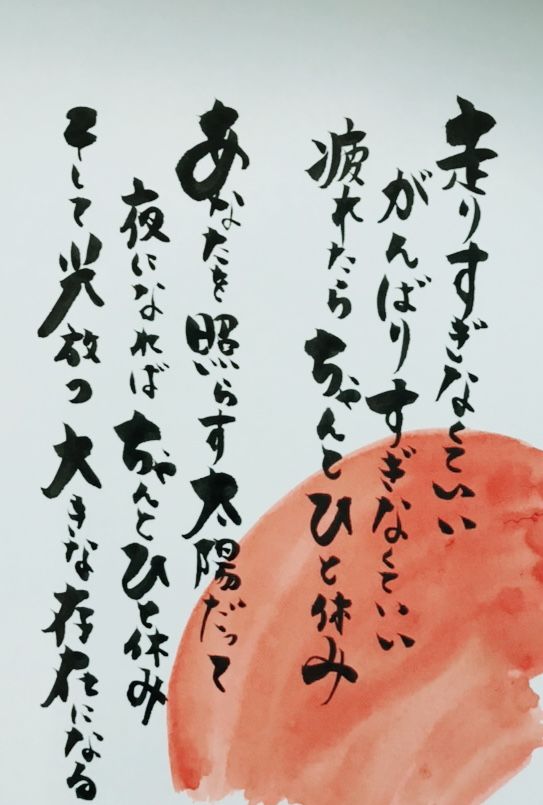 走りすぎなくていい
がんばりすぎなくていい
疲れたら ちゃんと ひと休み
あなたを 照らす 太陽だって
夜になれば ちゃんと ひと休み
そして 光放つ 大きな 存在になる